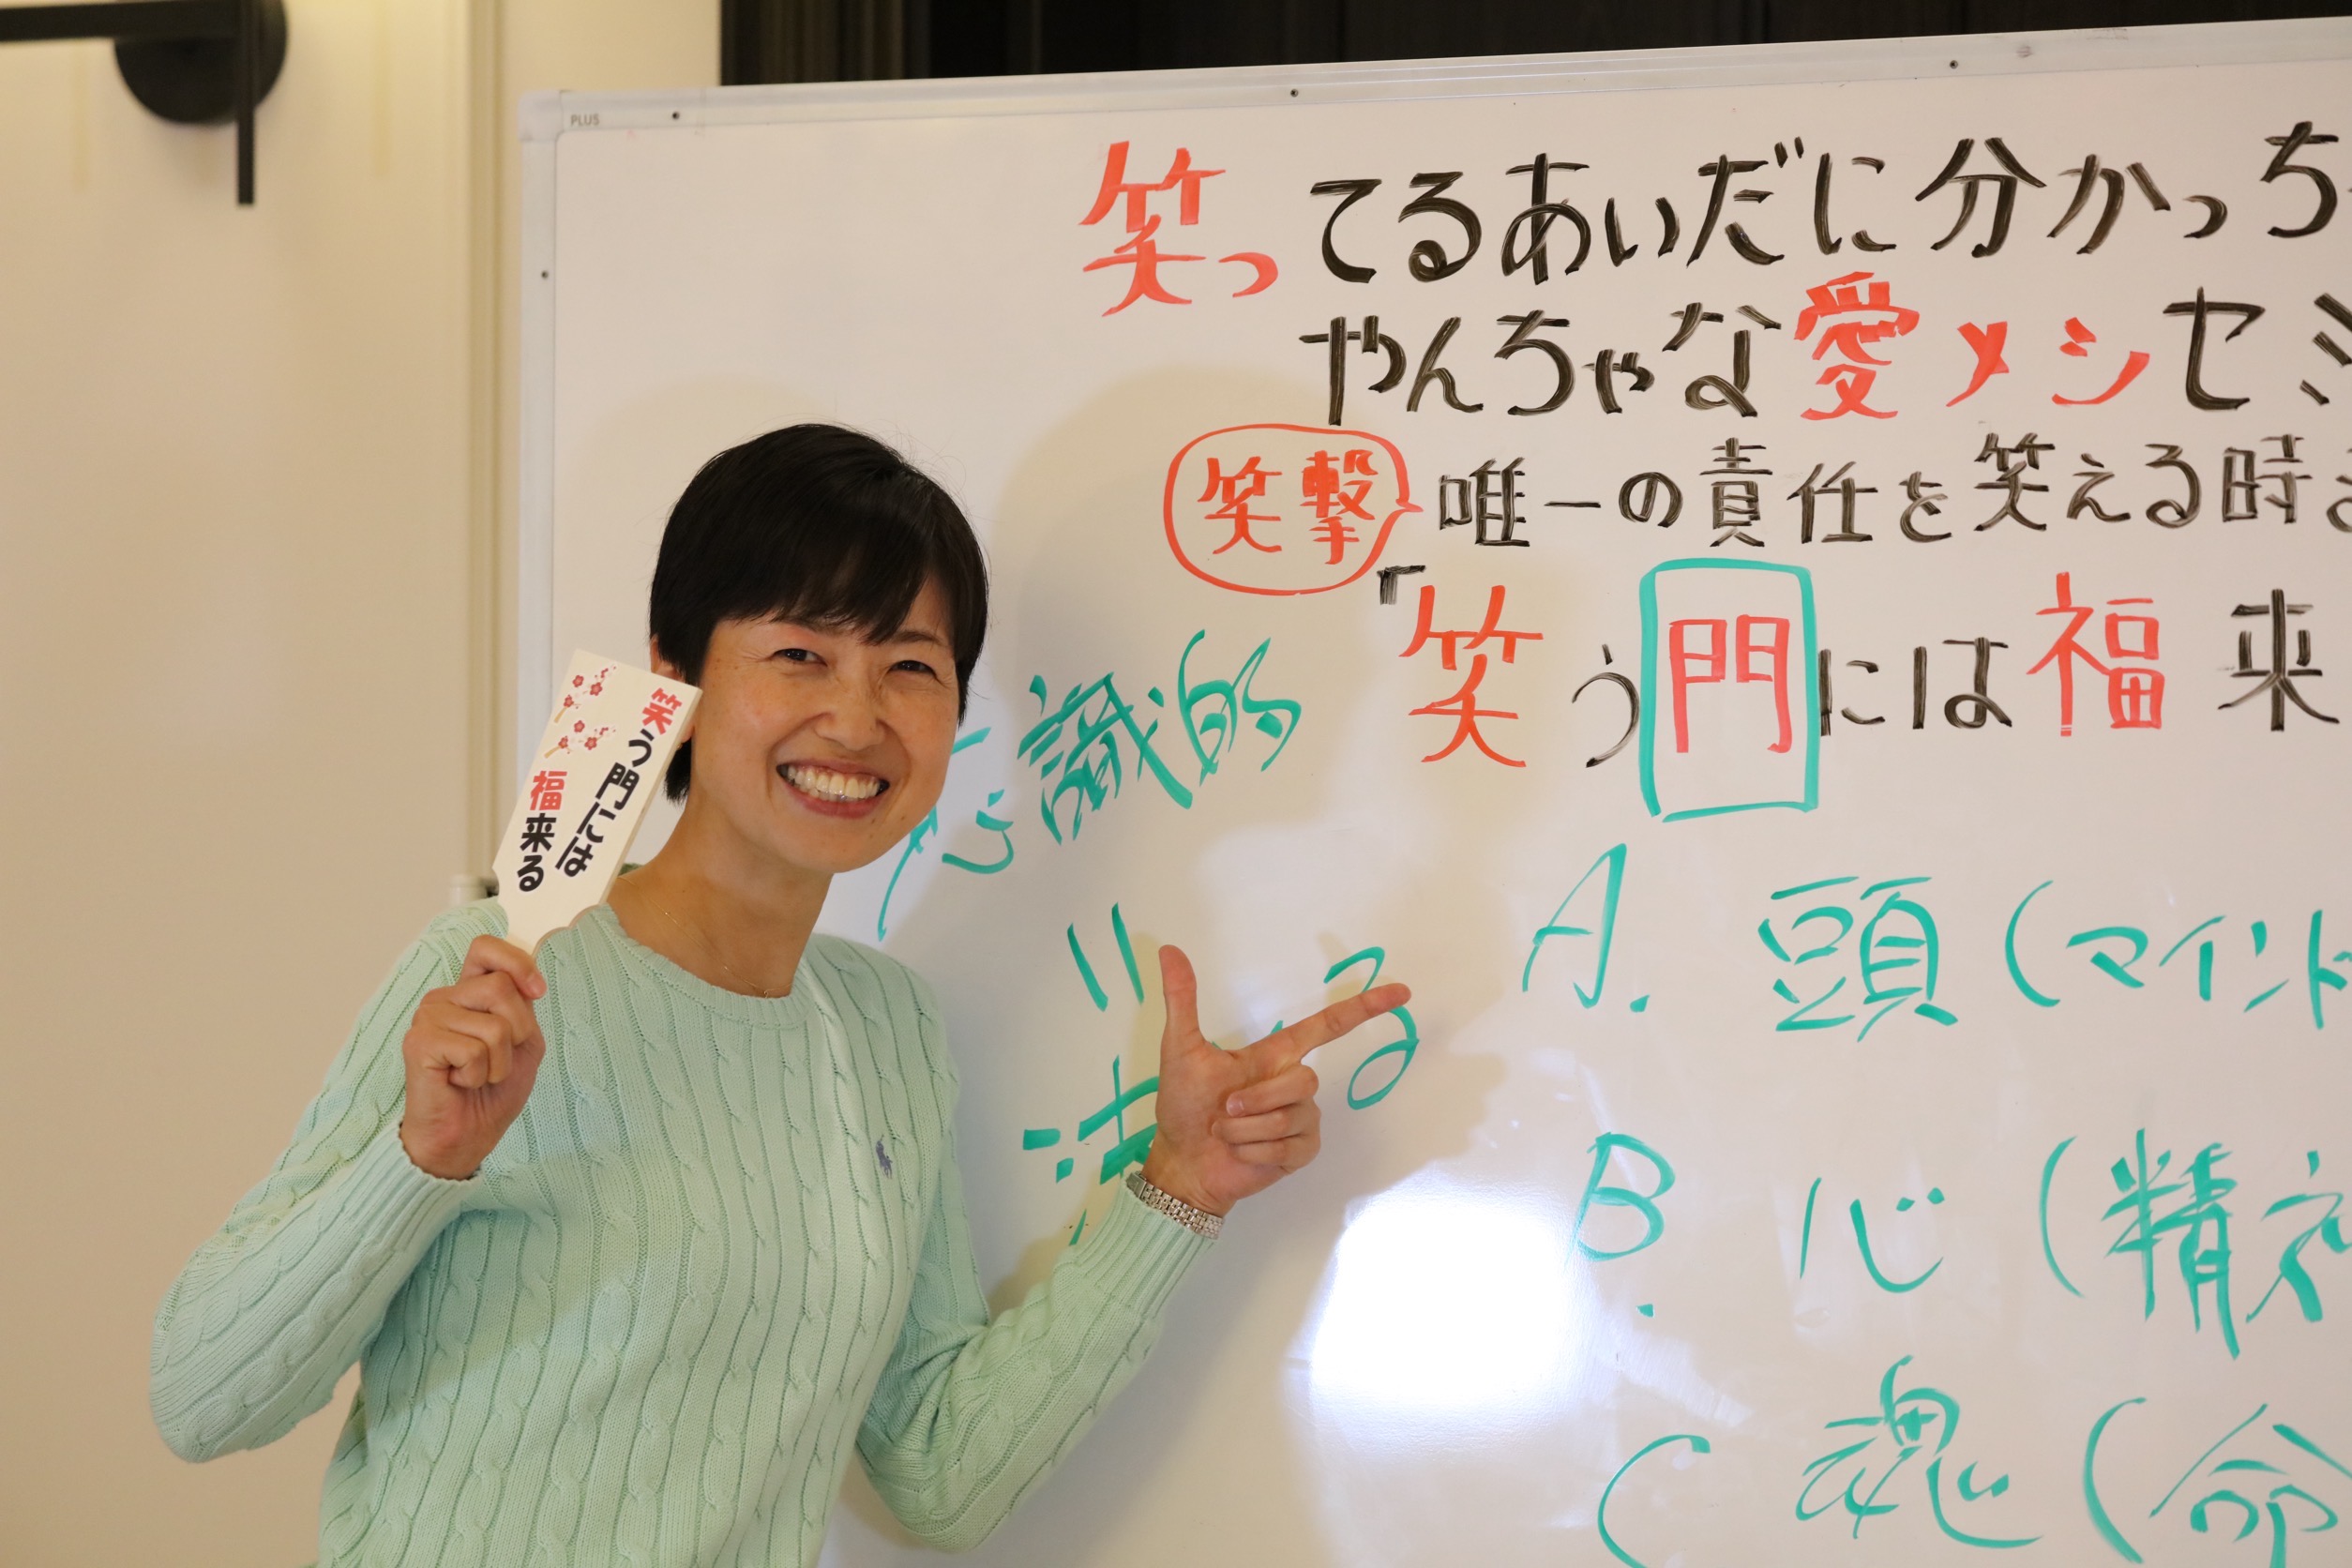 PLUS
笑ってるあいだに分かっち
やんちゃな愛メシセミ
笑撃 唯一の責任を笑える時
「笑う門には福来
識的
法 る
A. 頭(マインド
B. 心(精
C 魂(命
笑う門には
福来る